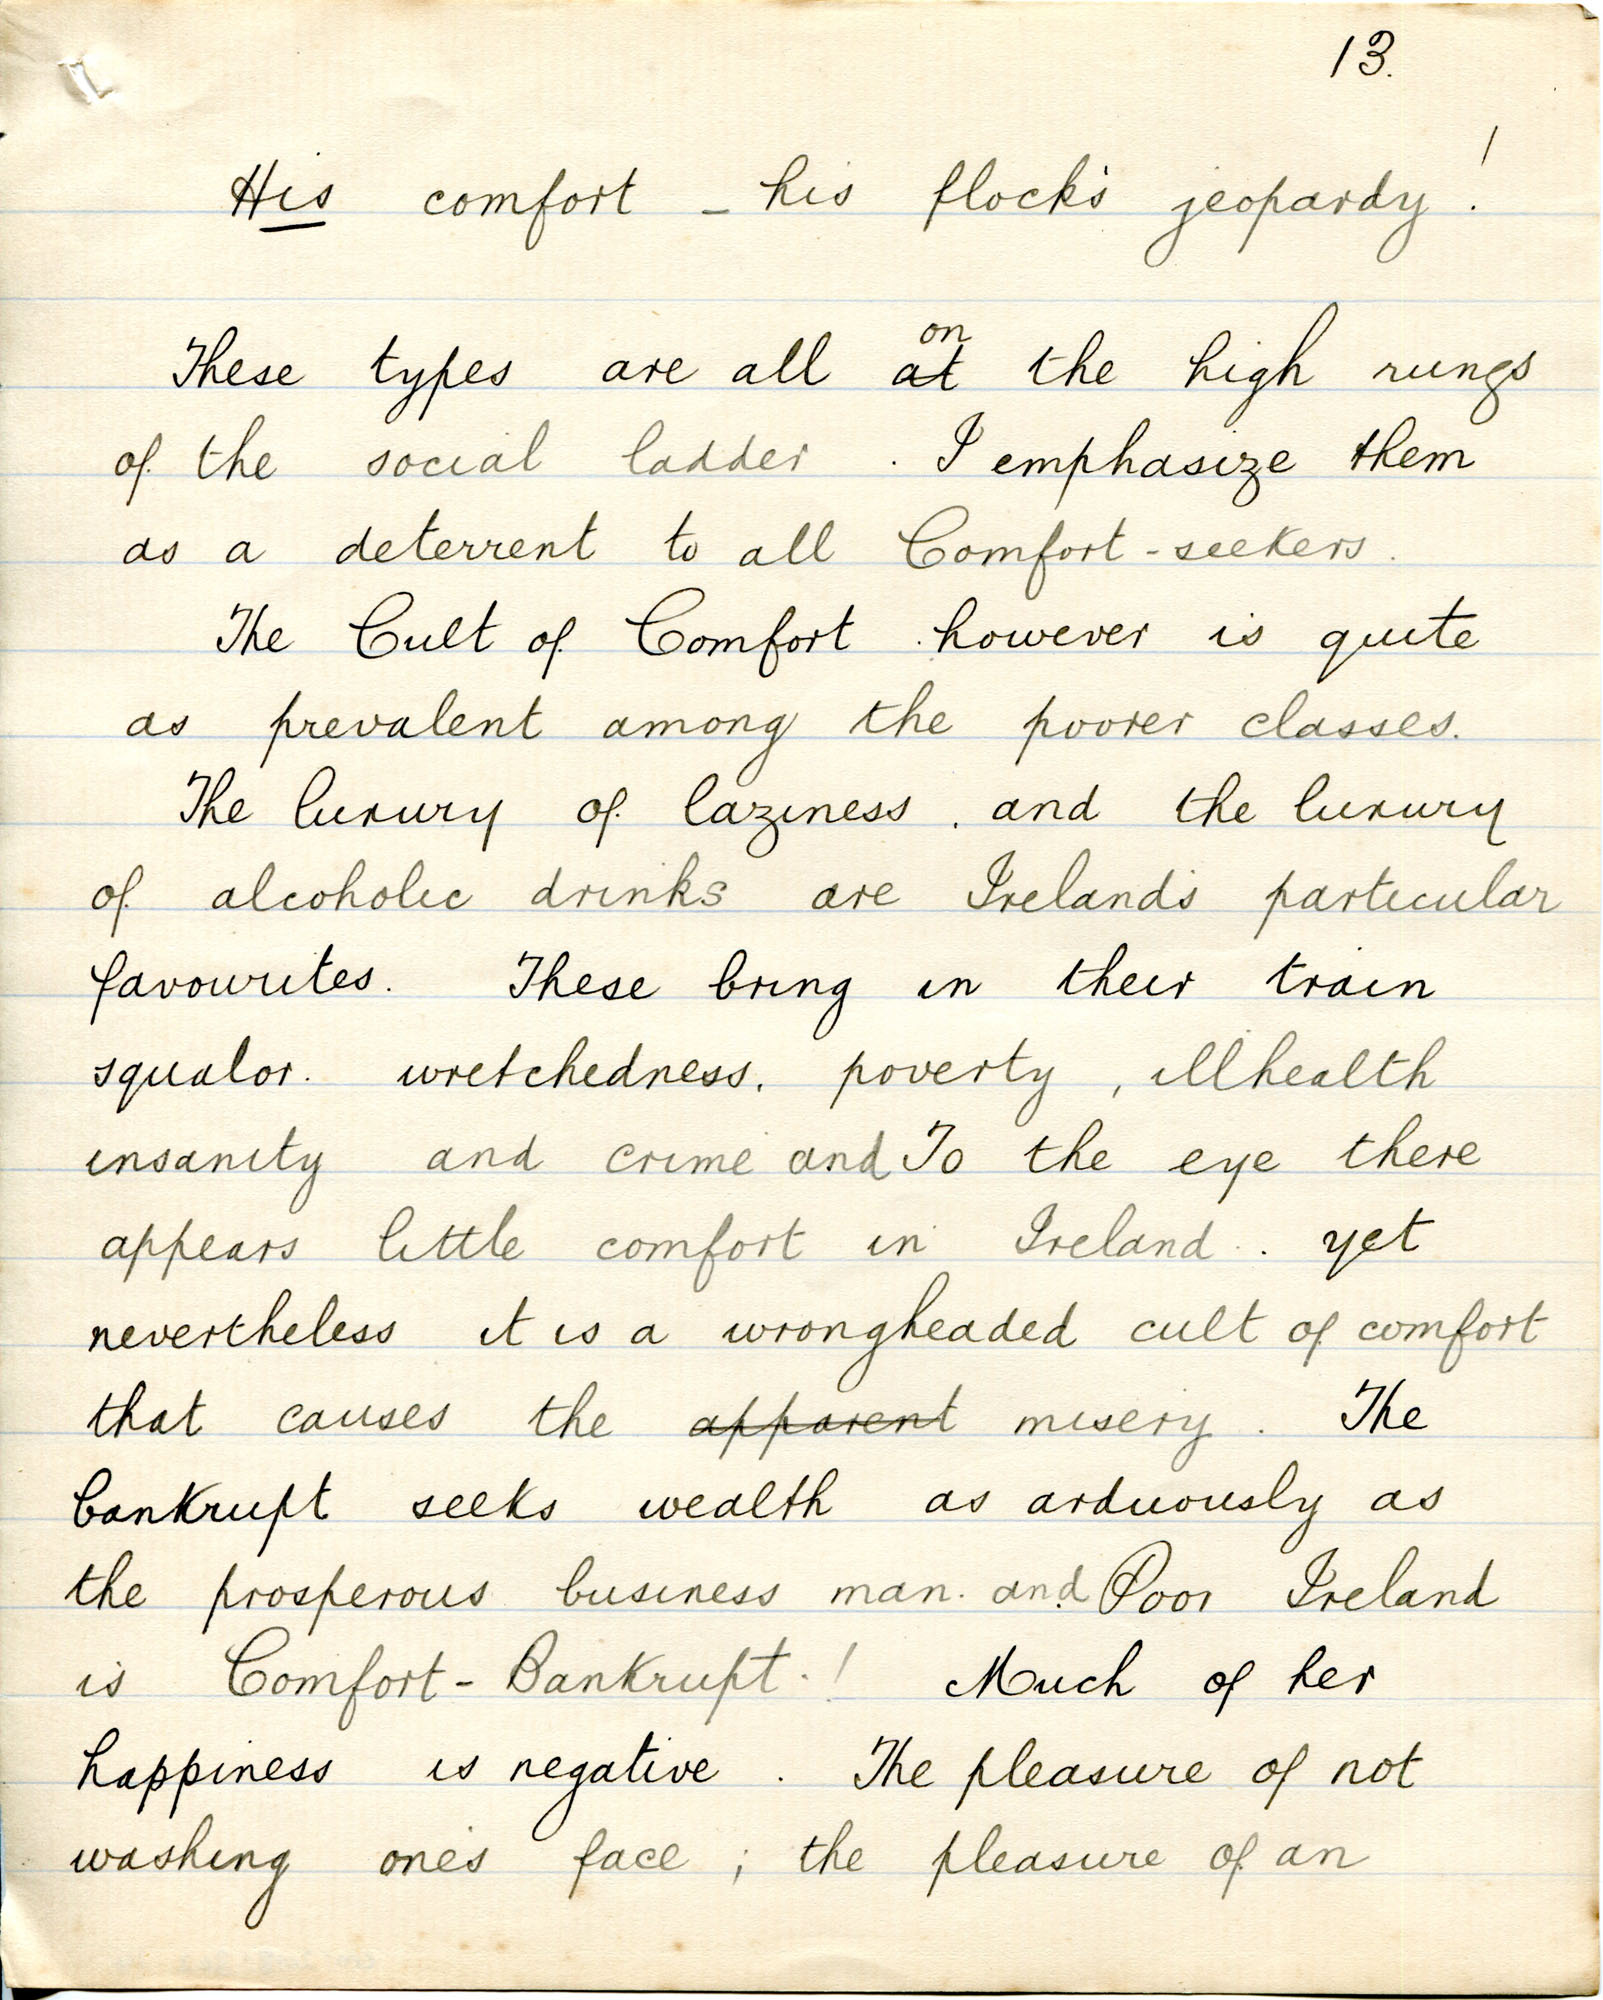 13.
His comfort – his flock's jeopardy!
These types are all at on the high rungs
of the social ladder. I emphasize them
as a deterrent to all Comfort-seekers.
The Cult of Comfort however is quite
as prevalent among the poorer classes.
The luxury of laziness. and the luxury
of alcoholic drinks are Ireland's particular
favourites. These bring in their train
squalor. wretchedness. poverty, illhealth
insanity and crime and To the eye there
appears little comfort in Ireland.. yet
nevertheless it is a wrongheaded cult of comfort
that causes the apparent misery. The
bankrupt seeks wealth as arduously as
the prosperous business man. and Poor Ireland
is Comfort-Bankrupt.! Much of her
happiness is negative. The pleasure of not
washing one's face; the pleasure of an